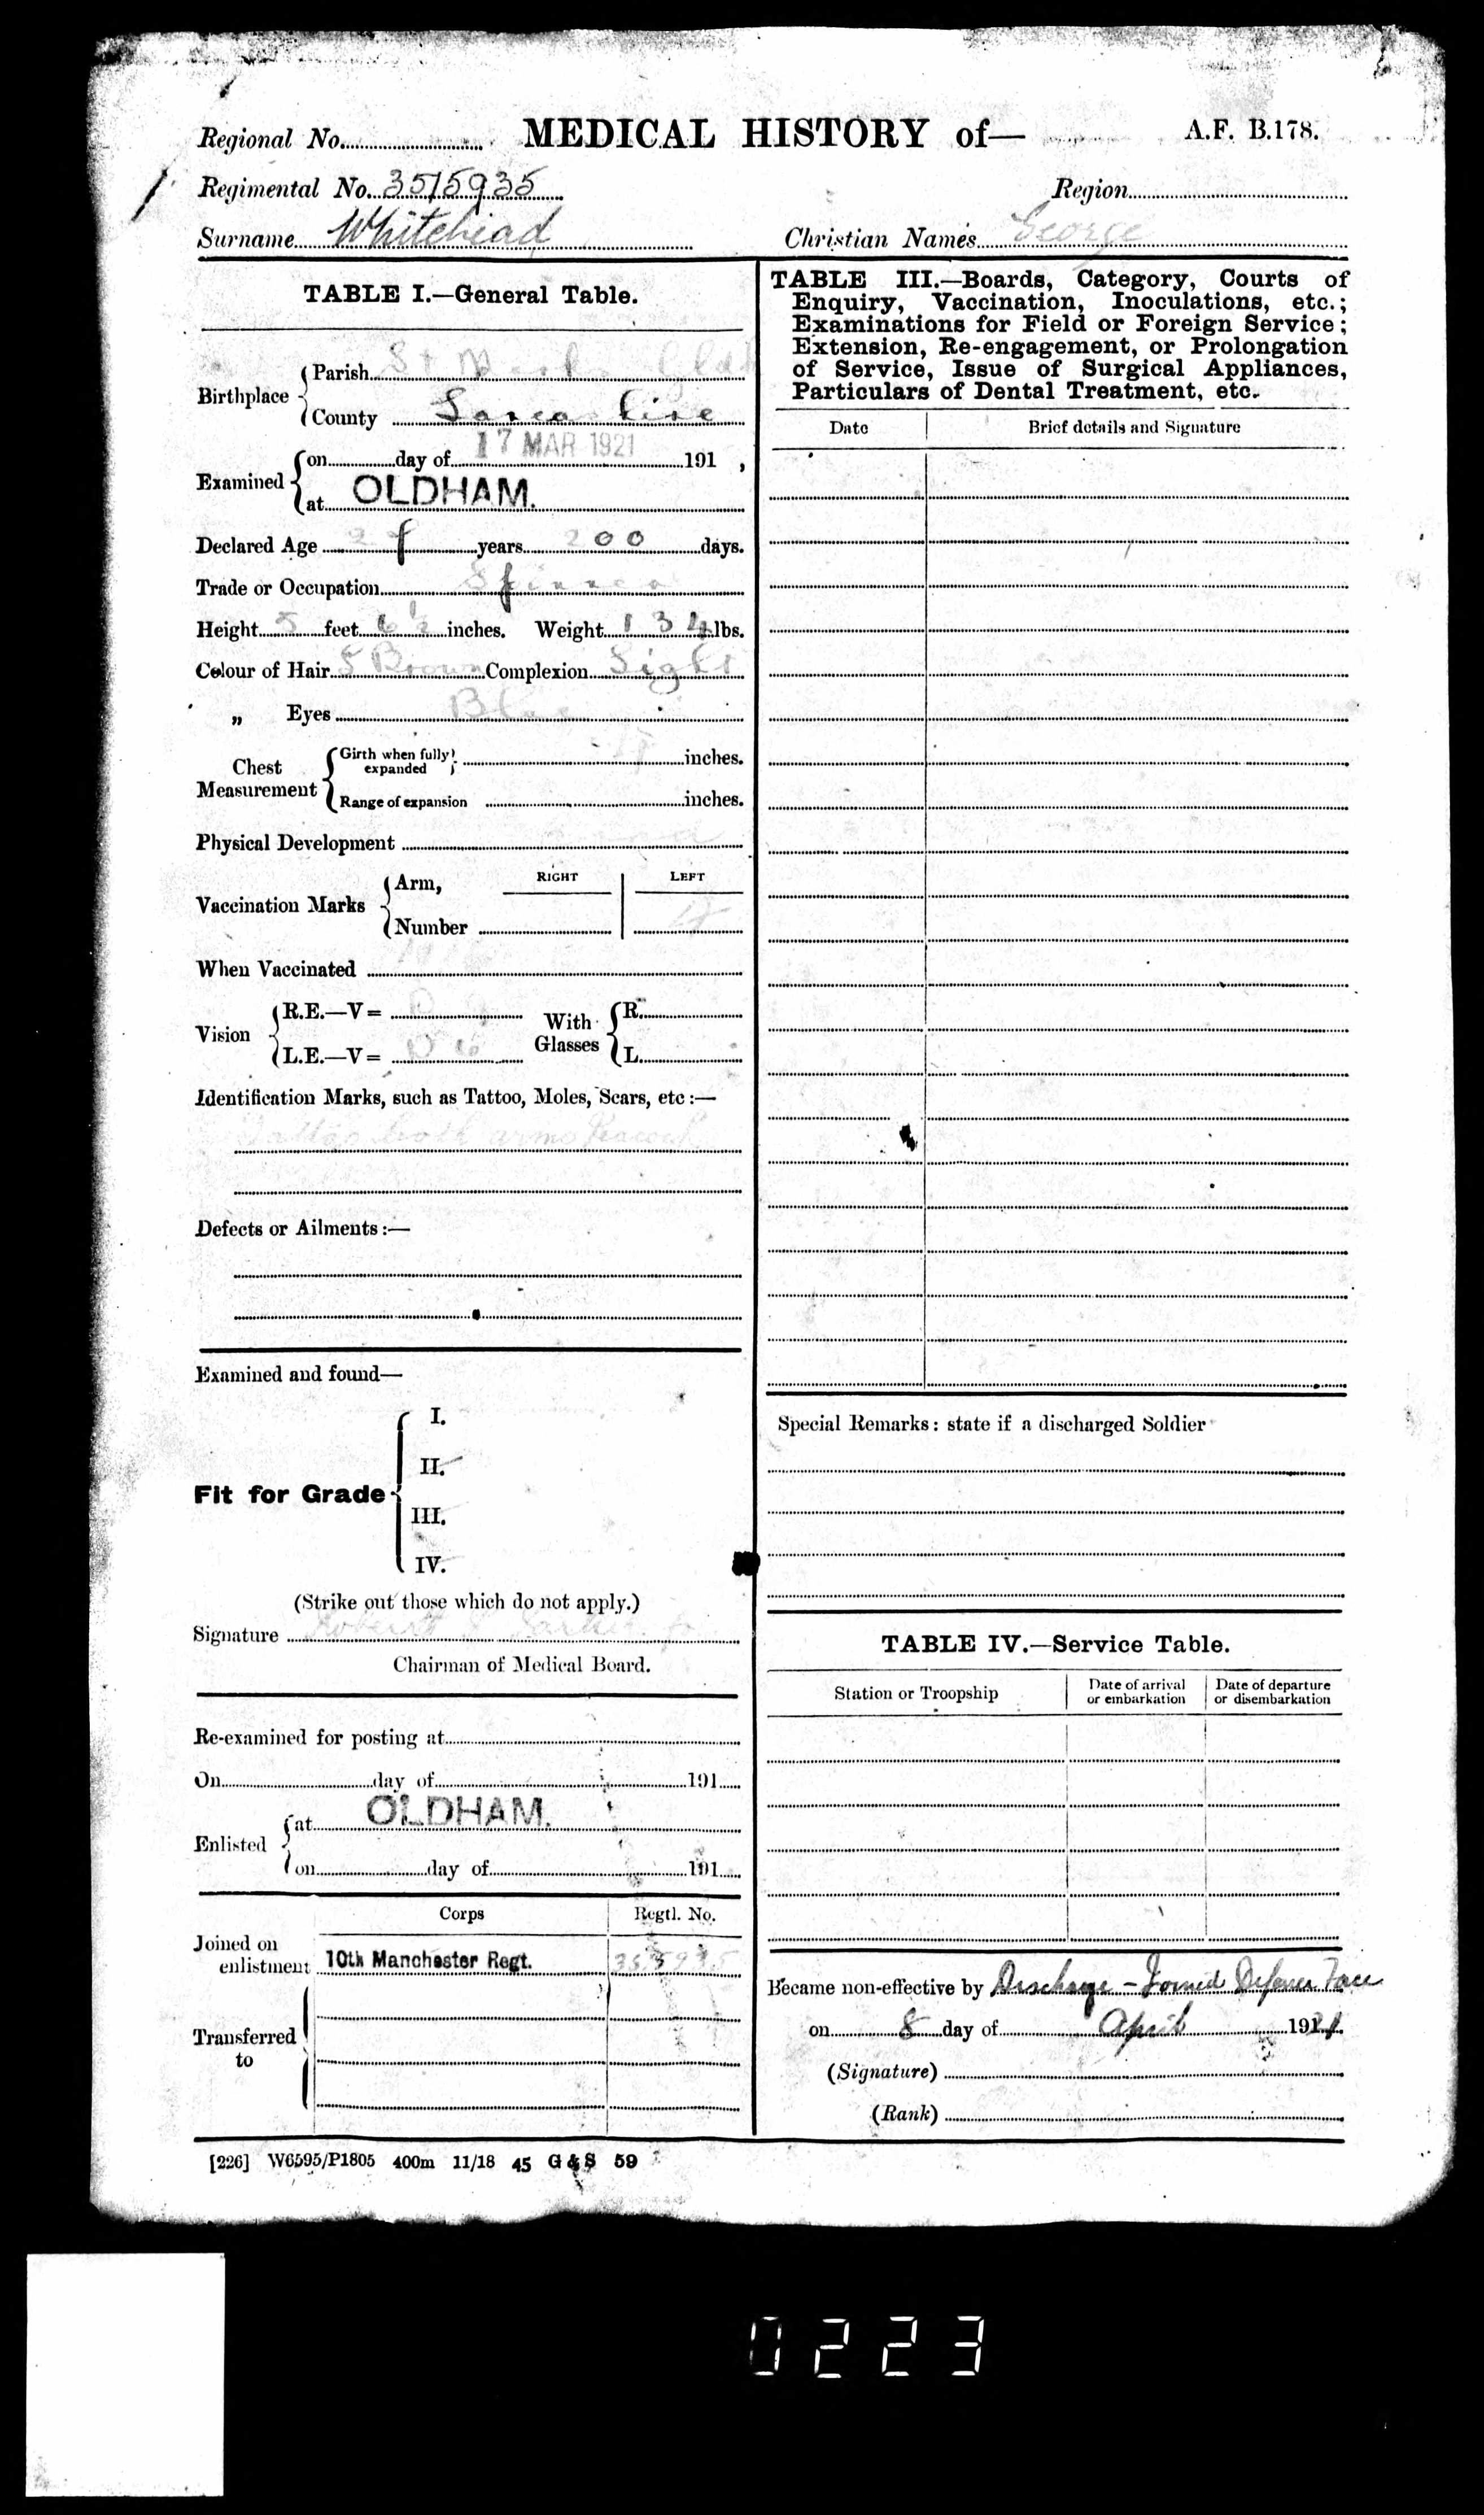 Regional No. MEDICAL HISTORY of— A.F. B.178.
Regimental No. 3515935 Region
Surname Whitehead Christian Names George
TABLE I.—General Table.
Birthplace Parish St Marks Oldh
County Lancashire
Examined on day of 17 MAR 1921 191 ,
at OLDHAM.
Declared Age years 200 days.
Trade or Occupation Spinner
Height 5 feet 6½ inches. Weight 134 lbs.
Colour of Hair Brown Complexion Light
„ Eyes Blue
Chest Measurement Girth when fully expanded inches.
Range of expansion inches.
Physical Development
Vaccination Marks Arm, RIGHT LEFT
Number
When Vaccinated
Vision R.E.—V= With Glasses R.
L.E.—V= L.
Identification Marks, such as Tattoo, Moles, Scars, etc :—
Tattoo both arms Peacock
Defects or Ailments :—
Examined and found—
Fit for Grade
I.
II.
III.
IV.
(Strike out those which do not apply.)
Signature Robert
Chairman of Medical Board.
Re-examined for posting at
On day of 191
Enlisted at OLDHAM.
on day of 191
Corps Regtl. No.
Joined on enlistment 10th Manchester Regt. 3515935
Transferred to
[226] W6595/P1805 400m 11/18 45 G & S 59
TABLE III.—Boards, Category, Courts of
Enquiry, Vaccination, Inoculations, etc.;
Examinations for Field or Foreign Service;
Extension, Re-engagement, or Prolongation
of Service, Issue of Surgical Appliances,
Particulars of Dental Treatment, etc.
Date Brief details and Signature
Special Remarks: state if a discharged Soldier
TABLE IV.—Service Table.
Station or Troopship Date of arrival or embarkation Date of departure or disembarkation
Became non-effective by Discharge – Joined Defence Force
on 8 day of April 1921.
(Signature)
(Rank)
0223